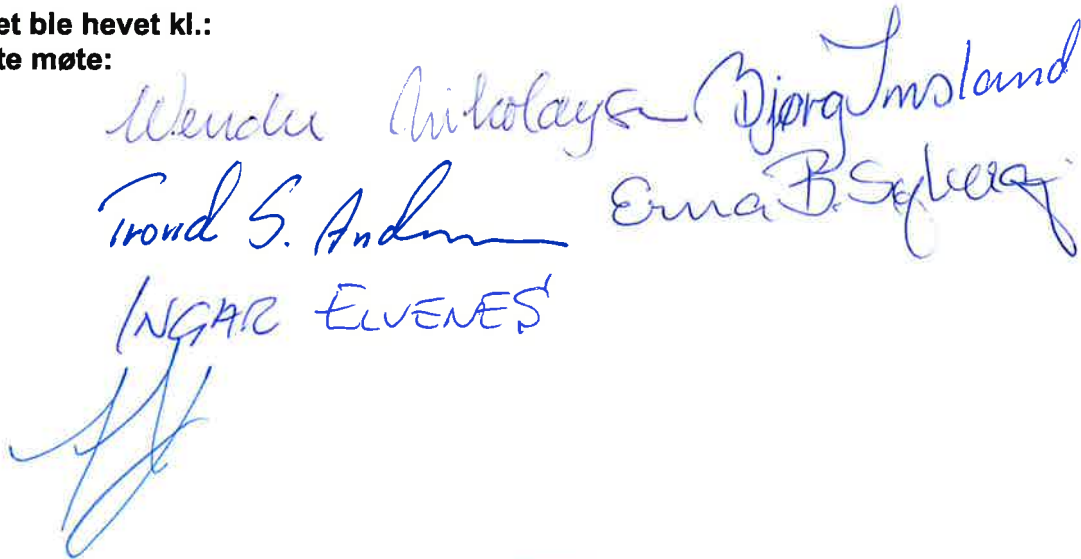 et ble hevet kl.:
te møte:
Wenche Nikolaysen Bjørg Imsland
Trond S. Andersen Erna B. Søberg
INGAR ELVENES